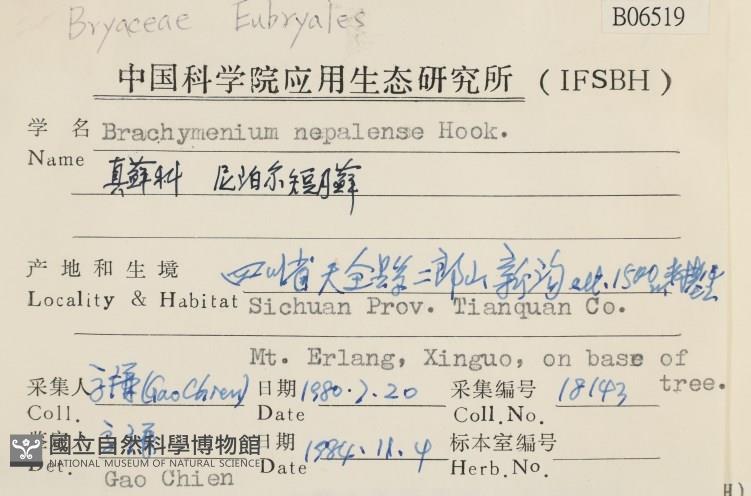 Bryaceae Eubryales
B06519
中国科学院应用生态研究所 (IFSBH)
学 名 Brachymenium nepalense Hook.
Name 真藓科 尼泊尔短月藓
产 地 和 生 境 四川省天全县二郎山新沟 alt. 1500 米 树基
Locality & Habitat Sichuan Prov. Tianquan Co.
Mt. Erlang, Xinguo, on base of
tree.
采集人 高谦 (Gao Chien) 日期 1980.7.20 采集编号 18143
Coll. Date Coll.No.
日期 1984.11.4 标本室编号
國立自然科學博物館
NATIONAL MUSEUM OF NATURAL SCIENCE
Det. Date Herb.No.
Gao Chien
H)